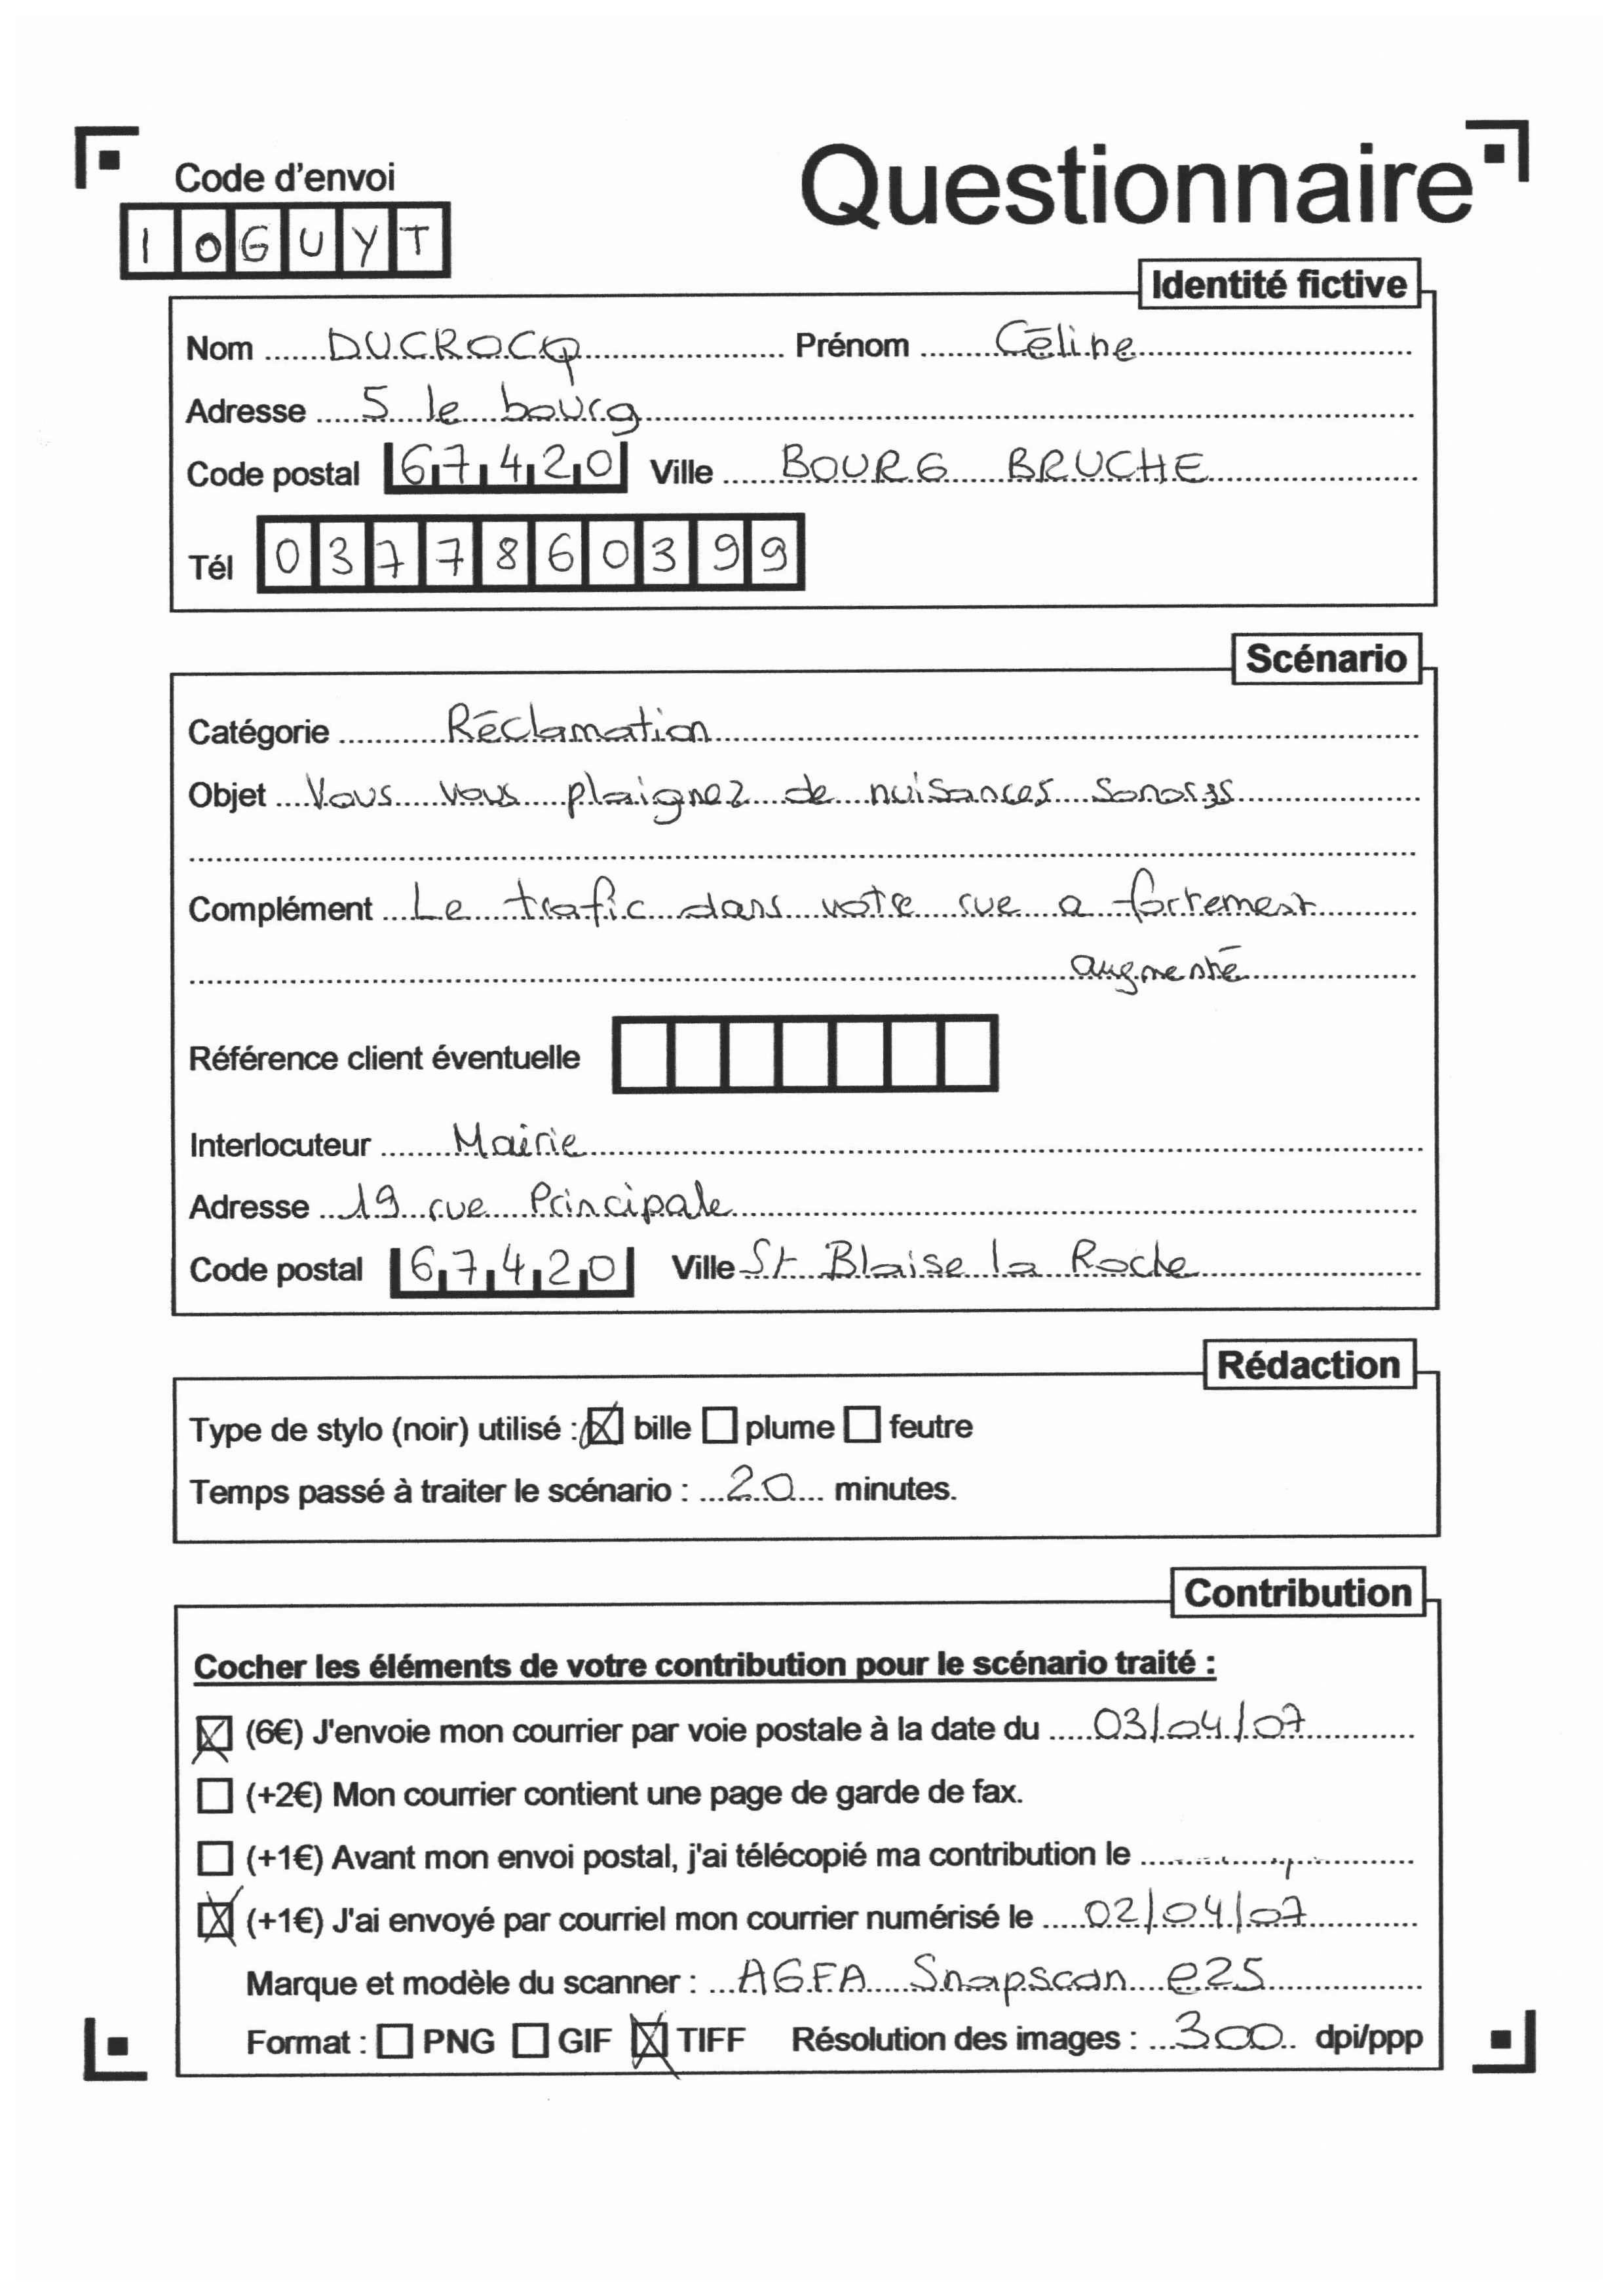 Questionnaire
Code d'envoi
I O G U Y T
Identité fictive
Nom DUCROCQ Prénom Céline
Adresse 5 le bourg
Code postal 67420 Ville BOURG BRUCHE
Tél 0377860399
Scénario
Catégorie Réclamation
Objet Vous vous plaignez de nuisances sonores
Complément Le trafic dans votre rue a fortement
augmenté
Référence client éventuelle
Interlocuteur Mairie
Adresse 19 rue Principale
Code postal 67420 Ville St Blaise la Roche
Rédaction
Type de stylo (noir) utilisé : bille plume feutre
Temps passé à traiter le scénario : 20 minutes.
Contribution
Cocher les éléments de votre contribution pour le scénario traité :
(6€) J'envoie mon courrier par voie postale à la date du 03/04/07
(+2€) Mon courrier contient une page de garde de fax.
(+1€) Avant mon envoi postal, j'ai télécopié ma contribution le
(+1€) J'ai envoyé par courriel mon courrier numérisé le 02/04/07
Marque et modèle du scanner : AGFA Snapscan e25
Format : PNG GIF TIFF Résolution des images : 300 dpi/ppp